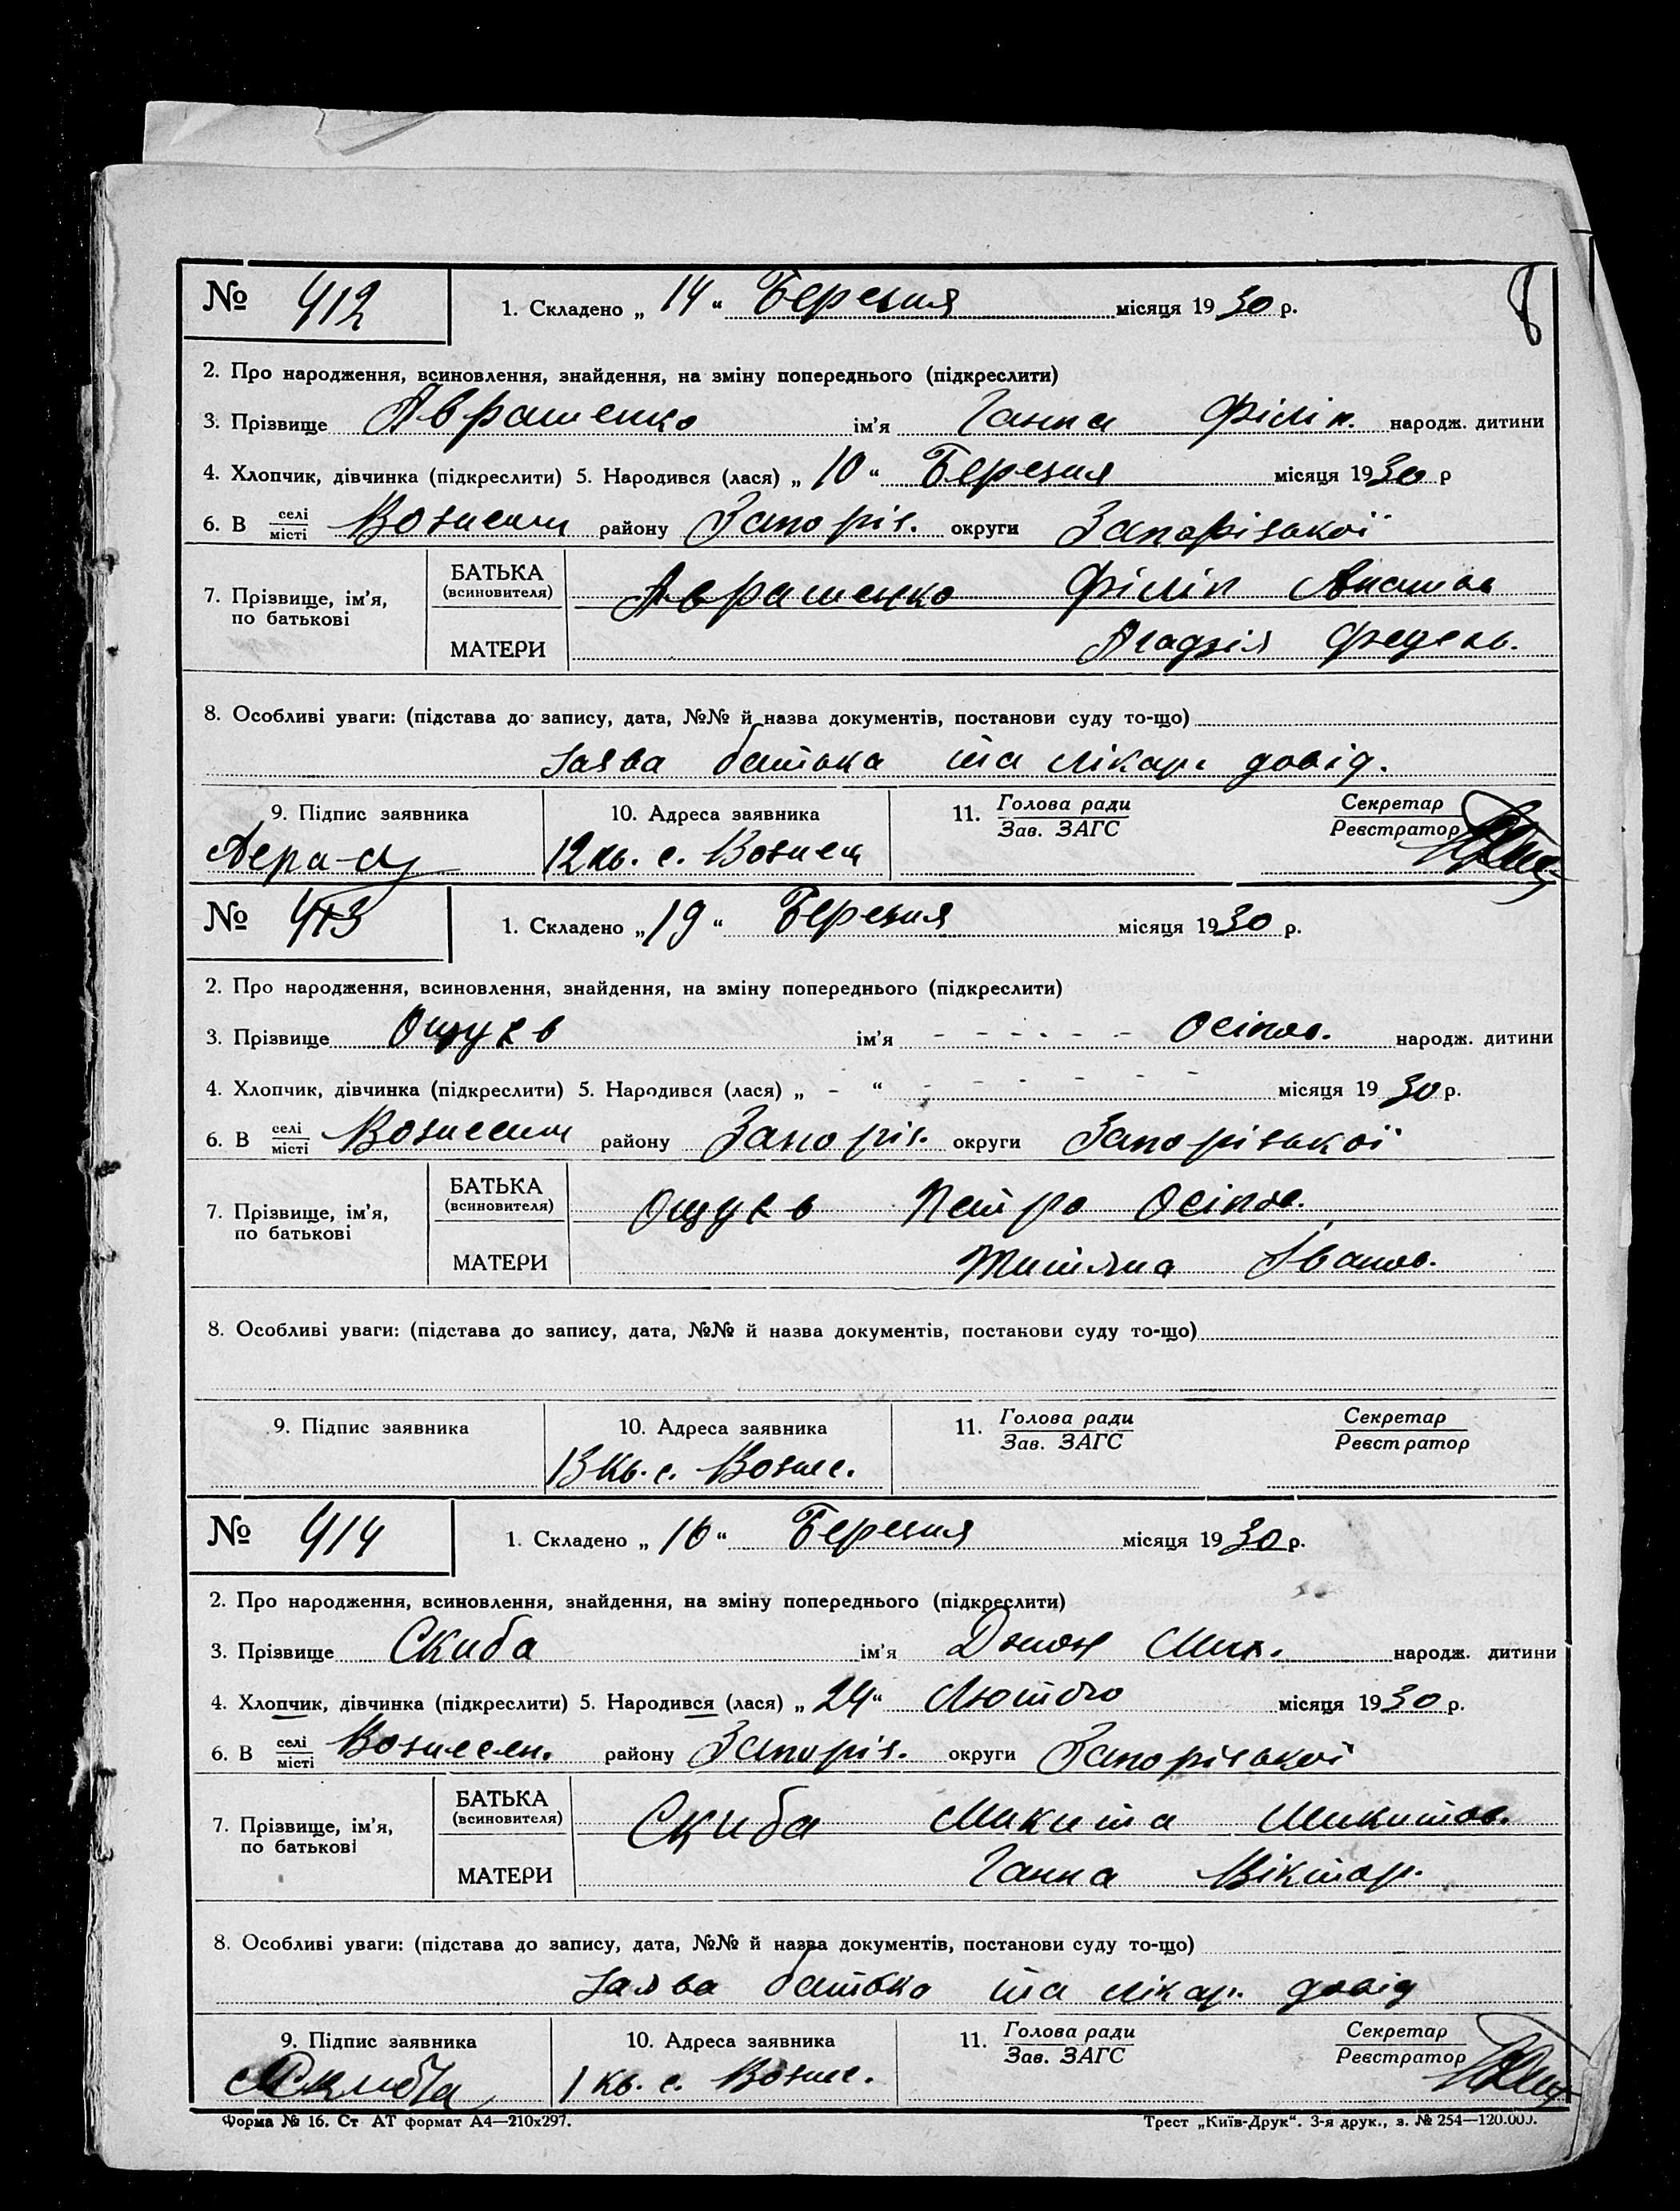 № 412 1. Складено „ 14 “ Березня місяця 1930 р.
8
2. Про народження, всиновлення, знайдення, на зміну попереднього (підкреслити)
3. Прізвище Аврашенко ім'я Ганна Філіп. народж. дитини
4. Хлопчик, дівчинка (підкреслити) 5. Народився (лася) „ 10 “ Березня місяця 1930 р
6. В селі/місті району Запоріз. округи Запорізької
7. Прізвище, ім'я, по батькові
БАТЬКА (всиновителя) Аврашенко Філіп
МАТЕРИ Федеков.
8. Особливі уваги: (підстава до запису, дата, №№ й назва документів, постанови суду то-що)
заява батька та лікар. довід.
9. Підпис заявника 10. Адреса заявника 11. Голова ради/Зав. ЗАГС Секретар/Реєстратор
12 кв. с.
№ 413 1. Складено „ 19 “ Березня місяця 1930 р.
2. Про народження, всиновлення, знайдення, на зміну попереднього (підкреслити)
3. Прізвище ім'я - - - - - - Осіпов. народж. дитини
4. Хлопчик, дівчинка (підкреслити) 5. Народився (лася) „ - “ - - - - - - місяця 1930 р.
6. В селі/місті району Запоріз. округи Запорізької
7. Прізвище, ім'я, по батькові
БАТЬКА (всиновителя) Петро Осіпов.
МАТЕРИ Іванов.
8. Особливі уваги: (підстава до запису, дата, №№ й назва документів, постанови суду то-що)
9. Підпис заявника 10. Адреса заявника 11. Голова ради/Зав. ЗАГС Секретар/Реєстратор
13 кв. с. Вознес.
№ 414 1. Складено „ 16 “ Березня місяця 1930 р.
2. Про народження, всиновлення, знайдення, на зміну попереднього (підкреслити)
3. Прізвище Скиба ім'я Мик. народж. дитини
4. Хлопчик, дівчинка (підкреслити) 5. Народився (лася) „ 24 “ Лютого місяця 1930 р.
6. В селі/місті Вознесен. району Запоріз. округи Запорізької
7. Прізвище, ім'я, по батькові
БАТЬКА (всиновителя) Скиба Микита Микитов.
МАТЕРИ Ганна Віктор.
8. Особливі уваги: (підстава до запису, дата, №№ й назва документів, постанови суду то-що)
заява батька та лікар. довід
9. Підпис заявника 10. Адреса заявника 11. Голова ради/Зав. ЗАГС Секретар/Реєстратор
1 кв. с. Вознес.
Форма № 16. Ст АТ формат А4—210х297. Трест „Київ-Друк“. 3-я друк., з. № 254—120.000.